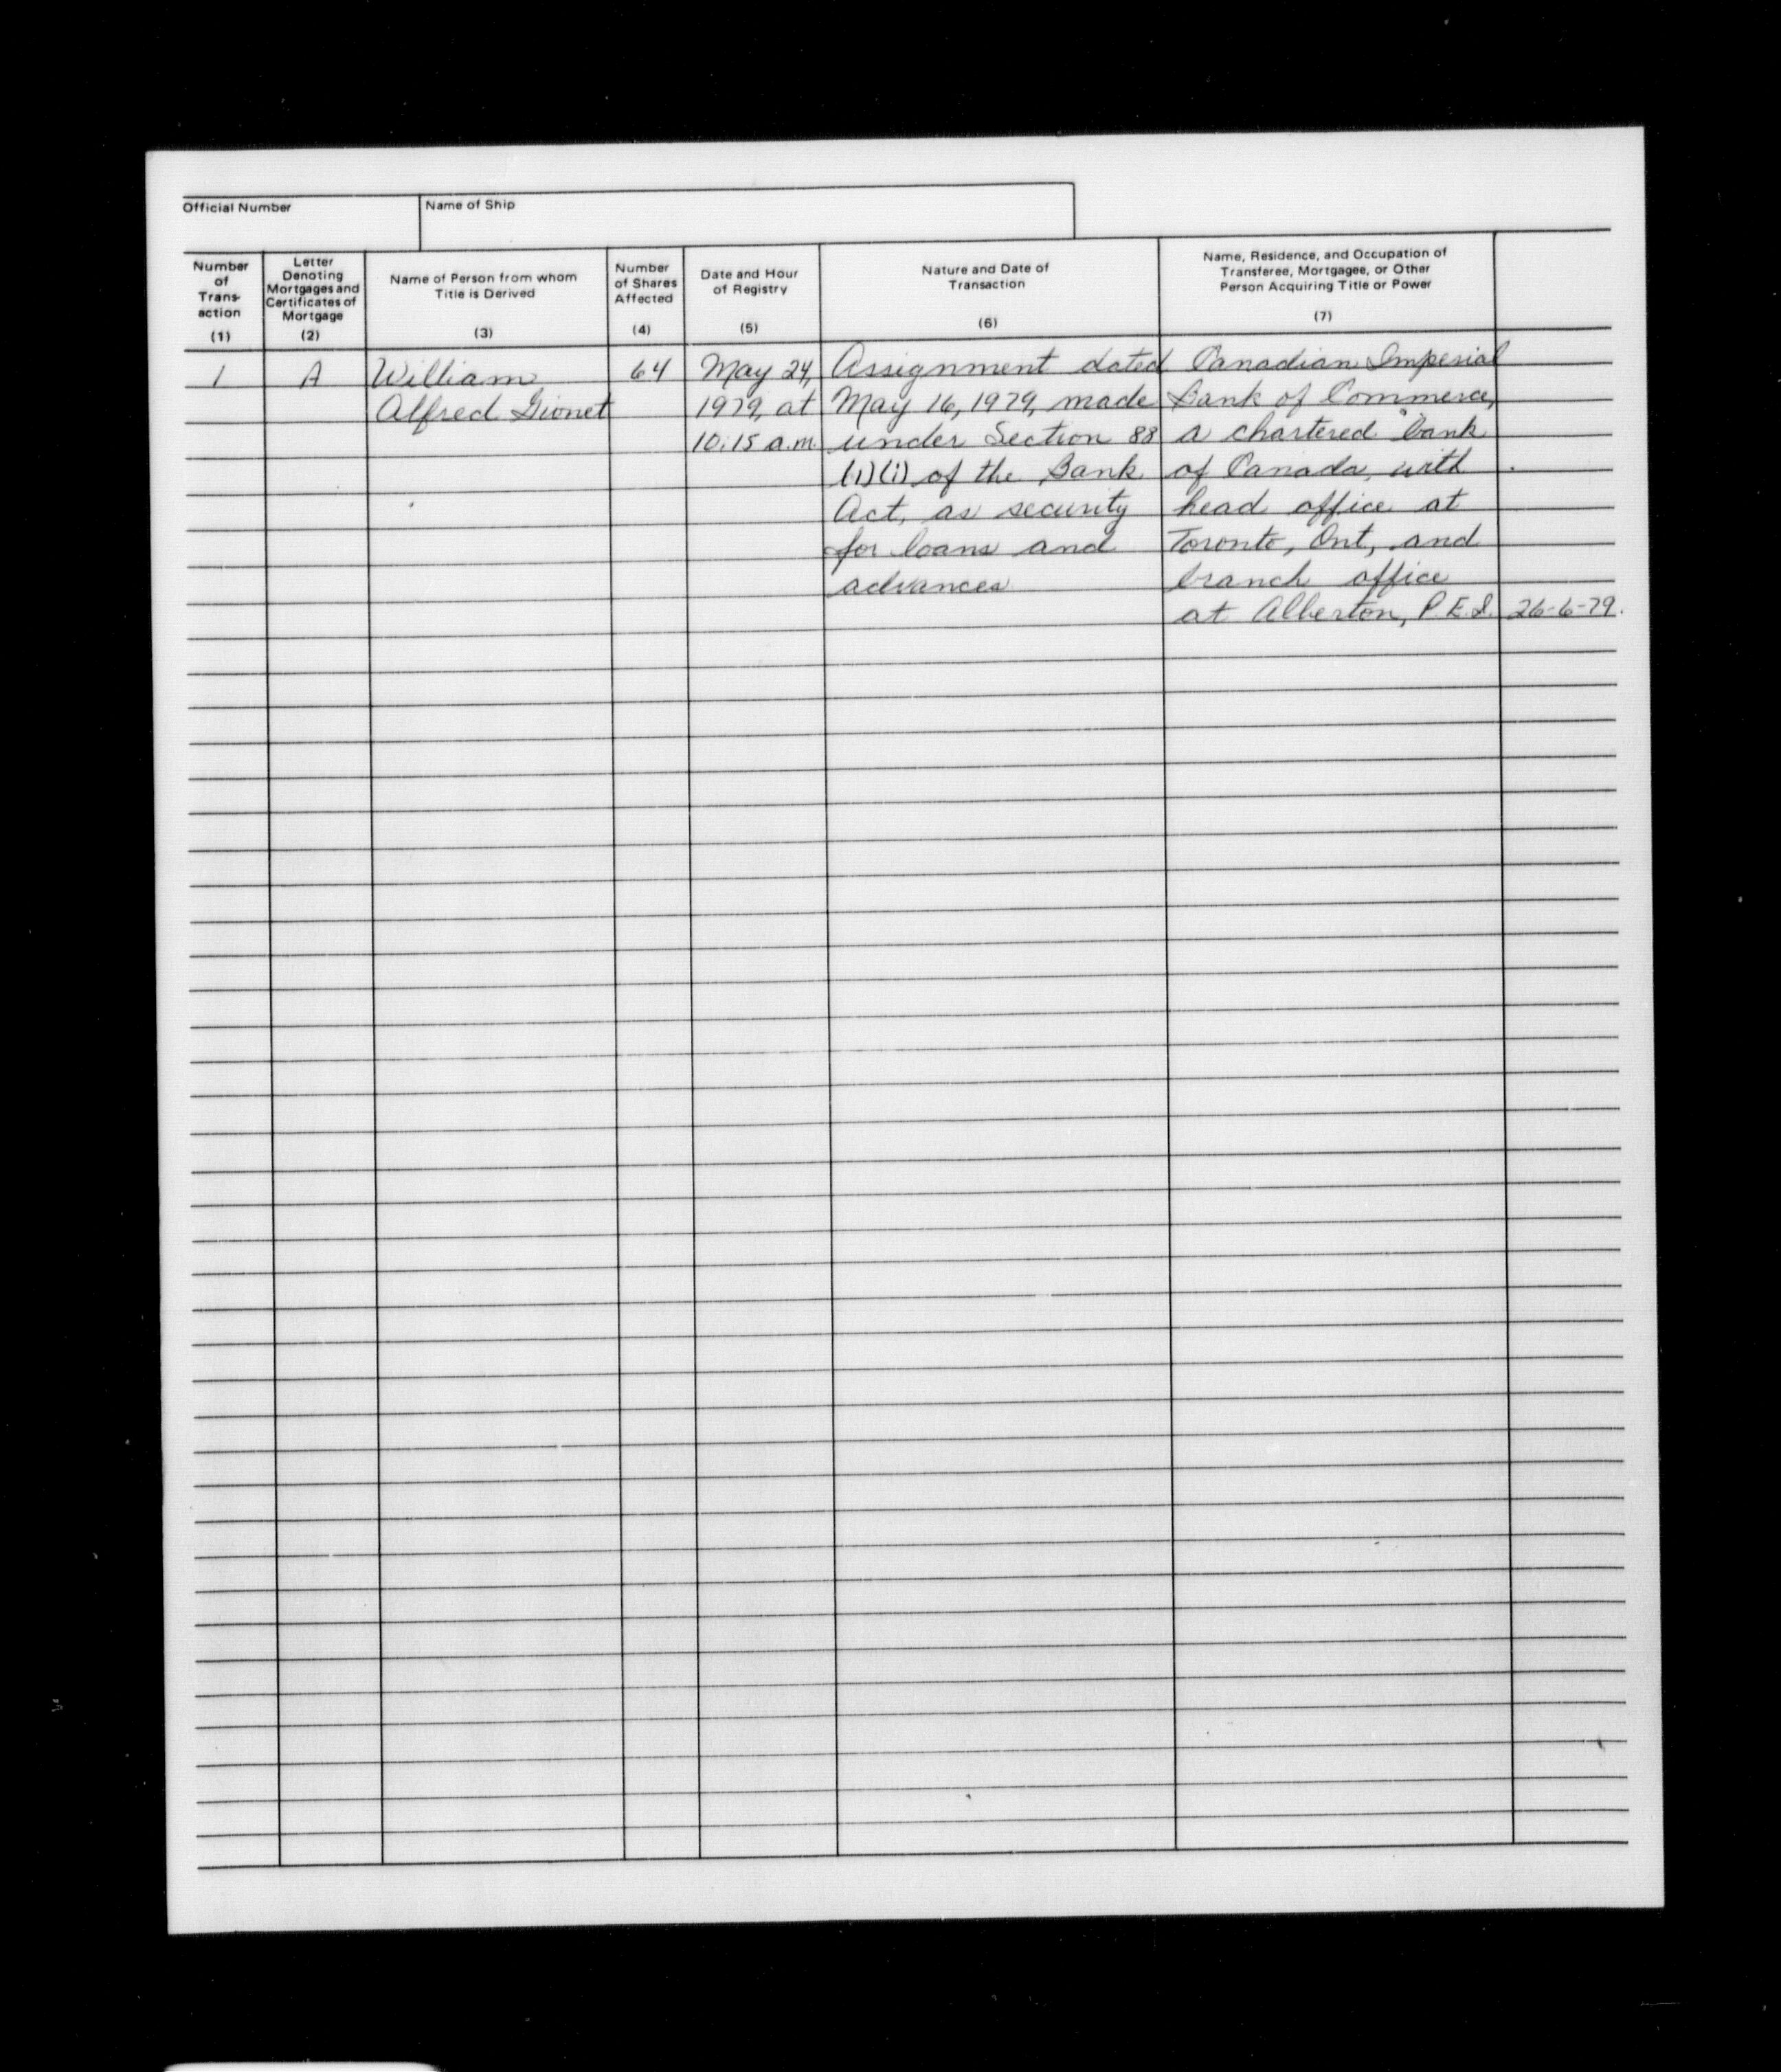 Official Number
Name of Ship
Number of Trans- action (1)
Letter Denoting Mortgages and Certificates of Mortgage (2)
Name of Person from whom Title is Derived (3)
Number of Shares Affected (4)
Date and Hour of Registry (5)
Nature and Date of Transaction (6)
Name, Residence, and Occupation of Transferee, Mortgagee, or Other Person Acquiring Title or Power (7)
1 A William 64 May 24, Assignment dated Canadian Imperial
Alfred Gionet 1979, at May 16, 1979, made Bank of Commerce,
10:15 a.m. under Section 88 a chartered bank
(1)(i) of the Bank of Canada, with
Act, as security head office at
for loans and Toronto, Ont, and
advances branch office
at Alberton, P.E.I. 26-6-79.